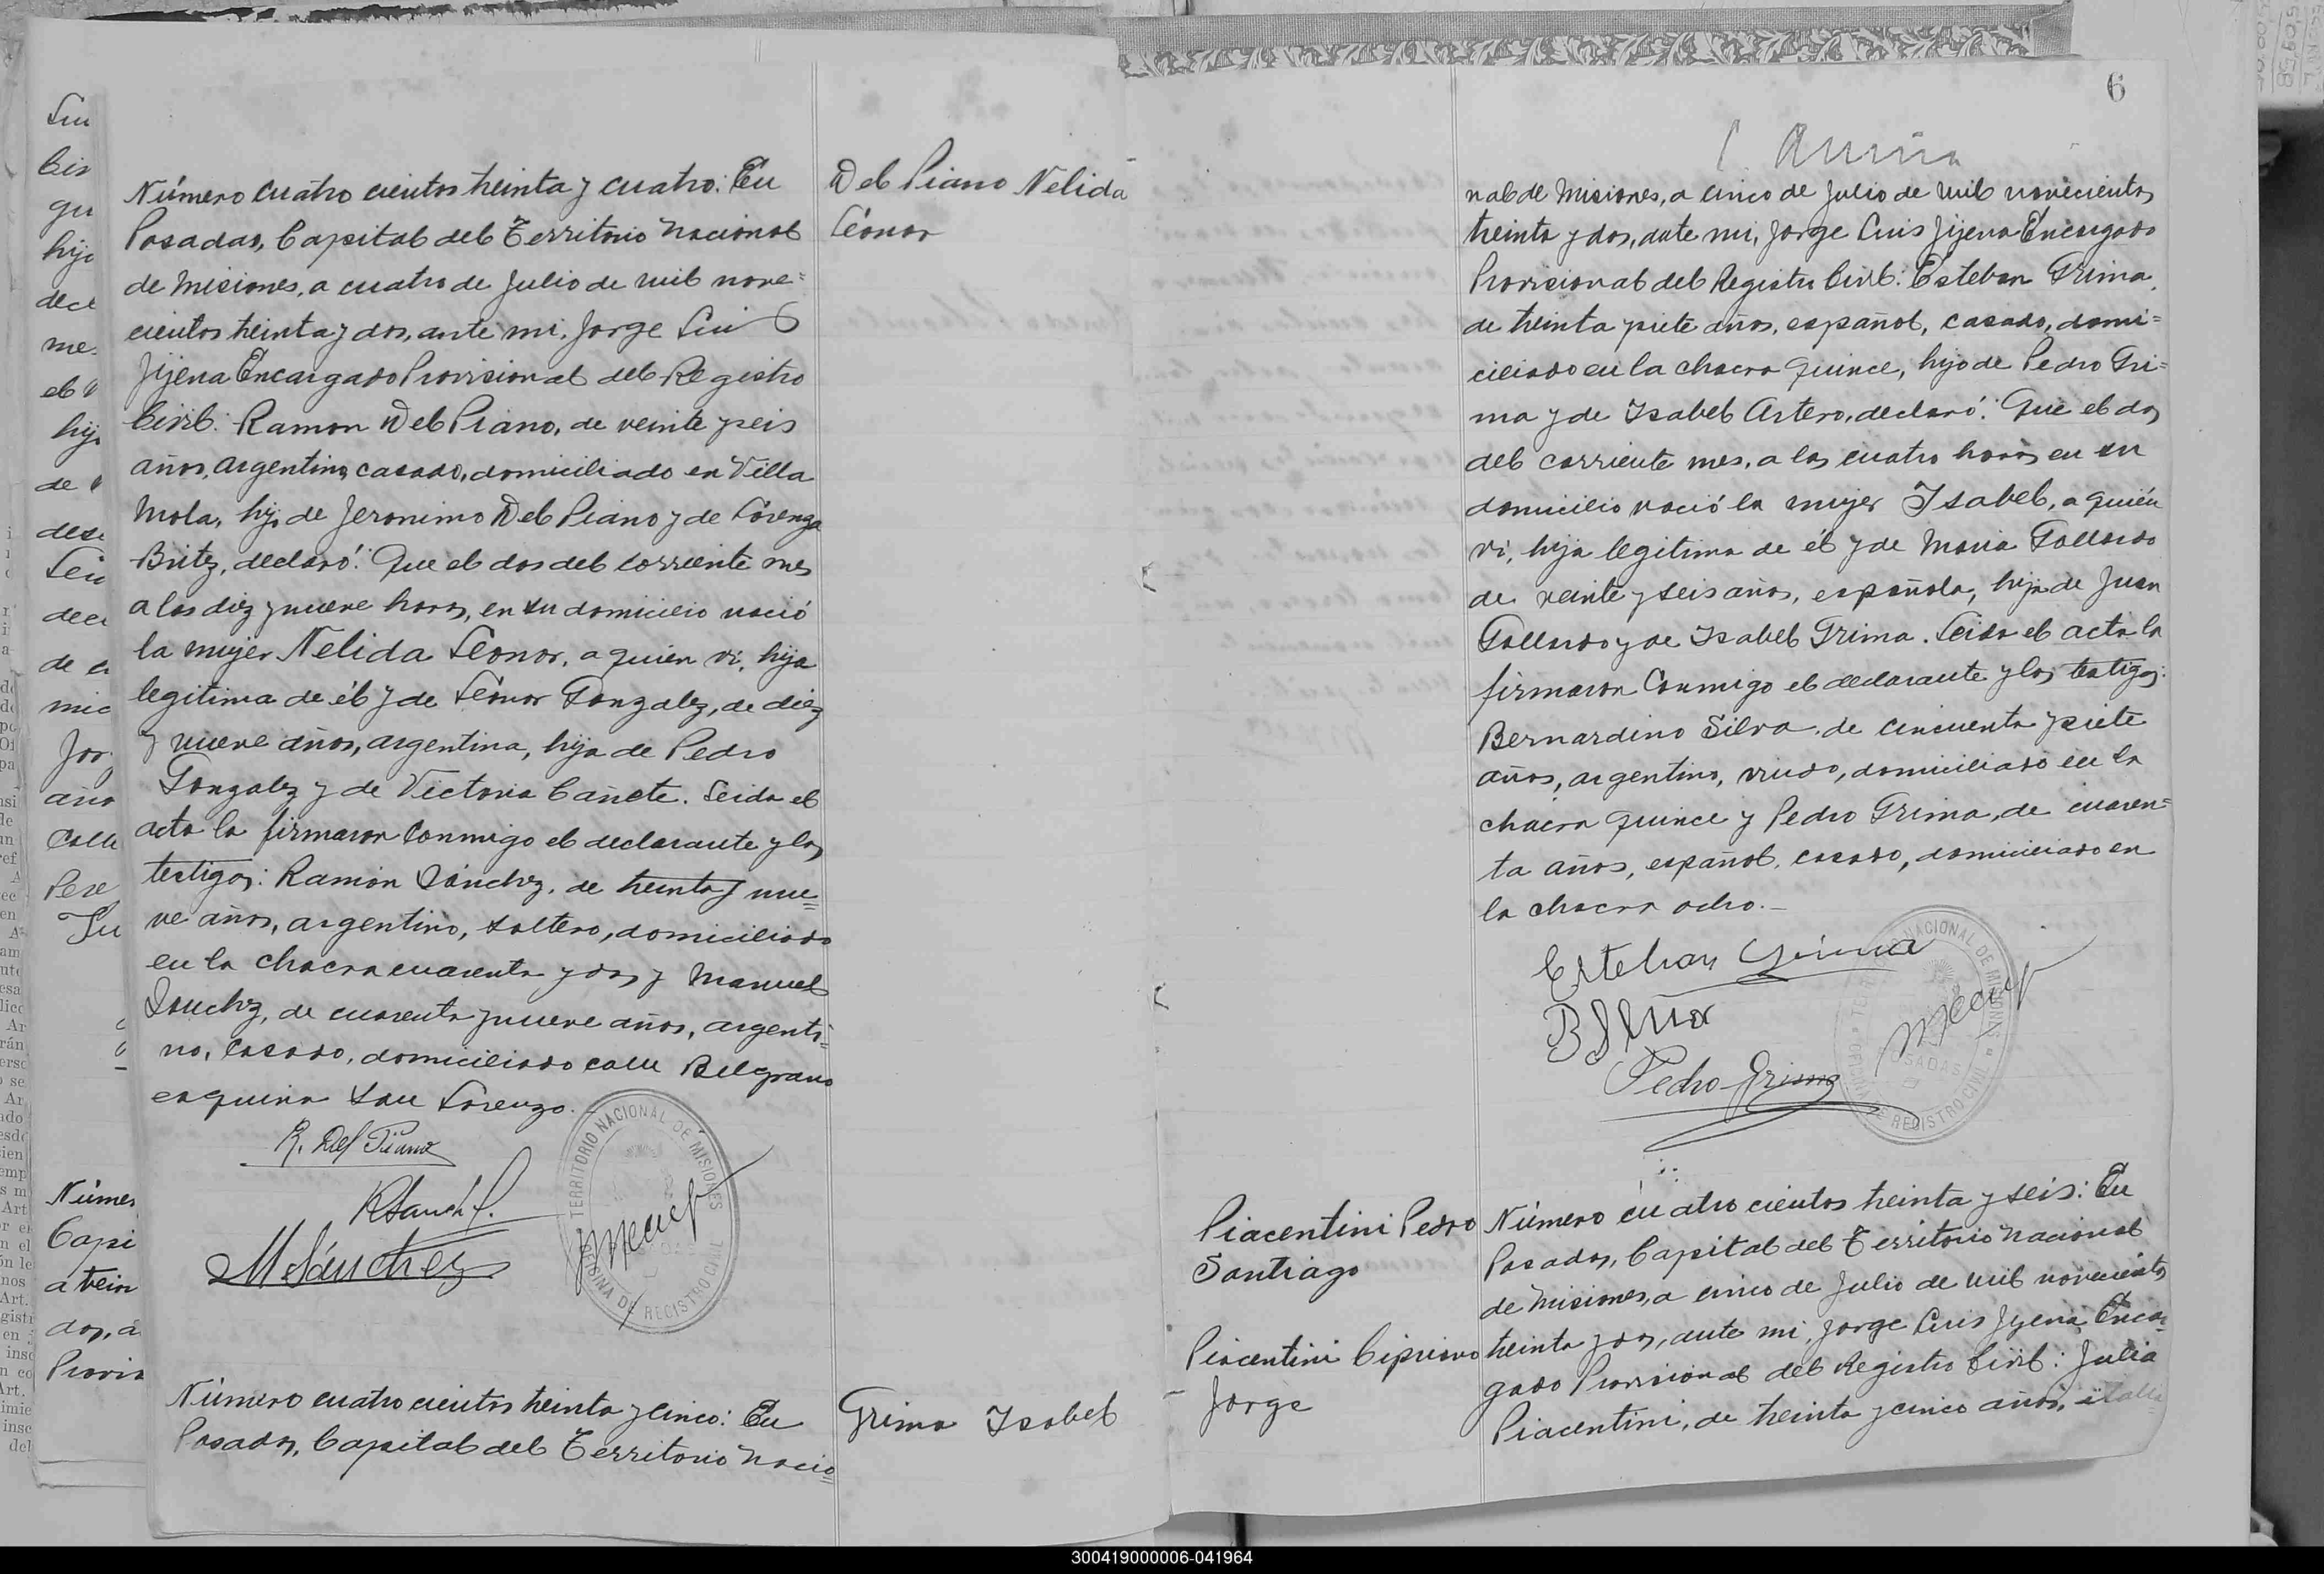 Número cuatro cientos treinta y cuatro: En
Posadas, Capital del Territorio Nacional
de Misiones, a cuatro de Julio de mil nove=
cientos treinta y dos, ante mi, Jorge Luis
Jijena Encargado Provisional del Registro
Civil: Ramon Del Piano, de veinte y seis
años, argentino, casado, domiciliado en Villa
Mola, hijo de Jeronimo Del Piano y de Lorenza
Britez, declaró: Que el dos del corriente mes
a las diez y nueve horas, en su domicilio nació
la mujer Nelida Leonor, a quien vi, hija
legitima de él y de Leonor Gonzalez, de diez
y nueve años, argentina, hija de Pedro
Gonzalez y de Victoria Cañete. Leida el
acta la firmaron conmigo el declarante y los
testigos: Ramón Sánchez, de treinta y nue=
ve años, argentino, soltero, domiciliado
en la chacra cuarenta y dos y Manuel
Sanchez, de cuarenta y nueve años, argenti=
no, casado, domiciliado calle Belgrano
esquina San Lorenzo.
R. Del Piano
RSanch
MSánchez
TERRITORIO NACIONAL DE MISIONES
OFICINA DE REGISTRO CIVIL
Del Piano Nelida
Leonor
Número cuatro cientos treinta y cinco: En
Posadas, Capital del Territorio Nacio=
Grima Isabel
6
nal de Misiones, a cinco de Julio de mil novecientos
treinta y dos, ante mi, Jorge Luis Jijena Encargado
Provisional del Registro Civil: Esteban Grima,
de treinta y siete años, español, casado, domi=
ciliado en la chacra quince, hijo de Pedro Gri=
ma y de Isabel Artero, declaró: Que el dos
del corriente mes, a las cuatro horas en su
domicilio nació la mujer Isabel, a quién
vi, hija legitima de él y de Maria Gallardo
de veinte y seis años, española, hija de Juan
Gallardo y de Isabel Grima. Leida el acta la
firmaron conmigo el declarante y los testigos:
Bernardino Silva, de cincuenta y siete
años, argentino, viudo, domiciliado en la
chacra quince y Pedro Grima, de cuaren=
ta años, español, casado, domiciliado en
la chacra ocho.—
Esteban Grima
BSilva
Pedro Grima
TERRITORIO NACIONAL DE MISIONES
POSADAS
DE REGISTRO CIVIL
Piacentini Pedro
Santiago
Piacentini Cipriano
Jorge
Número cuatro cientos treinta y seis: En
Posadas, Capital del Territorio Nacional
de Misiones, a cinco de Julio de mil novecientos
treinta y dos, ante mi, Jorge Luis Jijena Encar=
gado Provisional del Registro Civil: Julia
Piacentini, de treinta y cinco años, italia
300419000006-041964